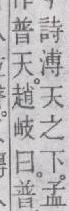 詩溥天之下。孟
作普天。趙岐曰。普